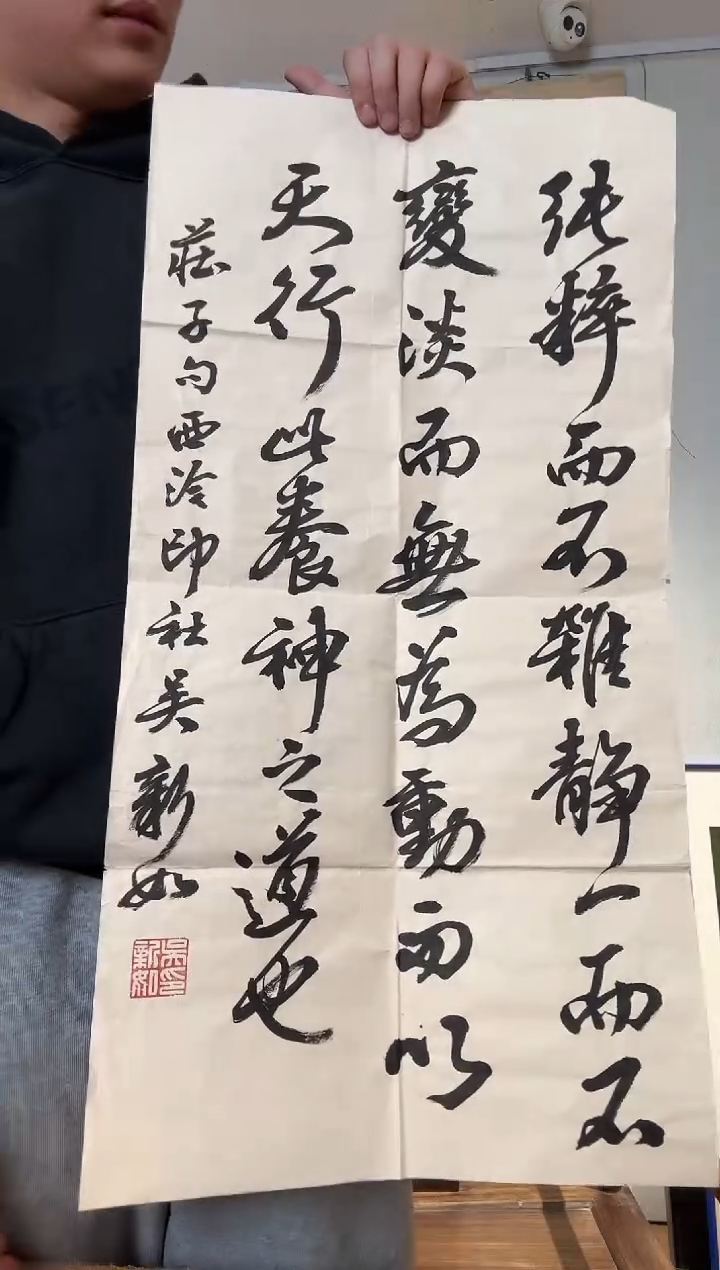 純粹而不雜靜一而不
變淡而無為動而以
天行此養神之道也
莊子句西泠印社吳新如
吳新如印